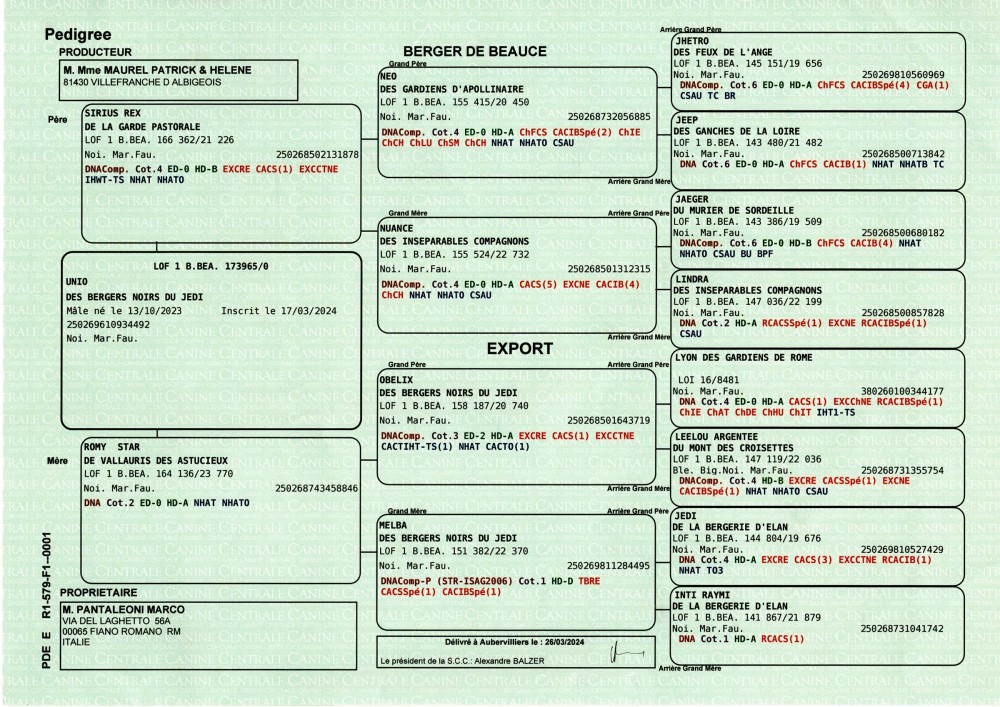 Pedigree
PRODUCTEUR
M. Mme MAUREL PATRICK & HELENE
81430 VILLEFRANCHE D ALBIGEOIS
BERGER DE BEAUCE
Père
SIRIUS REX
DE LA GARDE PASTORALE
LOF 1 B.BEA. 166 362/21 226
Noi. Mar.Fau. 250268502131878
DNAComp. Cot.4 ED-0 HD-B EXCRE CACS(1) EXCCTNE
IHWT-TS NHAT NHATO
LOF 1 B.BEA. 173965/0
UNIO
DES BERGERS NOIRS DU JEDI
Mâle né le 13/10/2023 Inscrit le 17/03/2024
250269610934492
Noi. Mar.Fau.
Mère
ROMY STAR
DE VALLAURIS DES ASTUCIEUX
LOF 1 B.BEA. 164 136/23 770
Noi. Mar.Fau. 250268743458846
DNA Cot.2 ED-0 HD-A NHAT NHATO
PROPRIETAIRE
M. PANTALEONI MARCO
VIA DEL LAGHETTO 56A
00065 FIANO ROMANO RM
ITALIE
PDE E R1-S79-F1--0001
Grand Père
NEO
DES GARDIENS D'APOLLINAIRE
LOF 1 B.BEA. 155 415/20 450
Noi. Mar.Fau. 250268732056885
DNAComp. Cot.4 ED-0 HD-A ChFCS CACIBSpé(2) ChIE
ChCH ChLU ChSM ChCH NHAT NHATO CSAU
Grand Mère
NUANCE
DES INSEPARABLES COMPAGNONS
LOF 1 B.BEA. 155 524/22 732
Noi. Mar.Fau. 250268501312315
DNAComp. Cot.4 ED-0 HD-A CACS(5) EXCNE CACIB(4)
ChCH NHAT NHATO CSAU
EXPORT
Grand Père
OBELIX
DES BERGERS NOIRS DU JEDI
LOF 1 B.BEA. 158 187/20 740
Noi. Mar.Fau. 250268501643719
DNAComp. Cot.3 ED-2 HD-A EXCRE CACS(1) EXCCTNE
CACTIHT-TS(1) NHAT CACTO(1)
Grand Mère
MELBA
DES BERGERS NOIRS DU JEDI
LOF 1 B.BEA. 151 382/22 370
Noi. Mar.Fau. 250269811284495
DNAComp-P (STR-ISAG2006) Cot.1 HD-D TBRE
CACSSpé(1) CACIBSpé(1)
Délivré à Aubervilliers le : 26/03/2024
Le président de la S.C.C.: Alexandre BALZER
Arrière Grand Père
JHETRO
DES FEUX DE L'ANGE
LOF 1 B.BEA. 145 151/19 656
Noi. Mar.Fau. 250269810560969
DNAComp. Cot.6 ED-0 HD-A ChFCS CACIBSpé(4) CGA(1)
CSAU TC BR
JEEP
DES GANCHES DE LA LOIRE
LOF 1 B.BEA. 143 480/21 482
Noi. Mar.Fau. 250268500713842
DNA Cot.6 ED-0 HD-A ChFCS CACIB(1) NHAT NHATB TC
Arrière Grand Mère
Arrière Grand Père
JAEGER
DU MURIER DE SORDEILLE
LOF 1 B.BEA. 143 386/19 509
Noi. Mar.Fau. 250268500680182
DNAComp. Cot.6 ED-0 HD-B ChFCS CACIB(4) NHAT
NHATO CSAU BU BPF
LINDRA
DES INSEPARABLES COMPAGNONS
LOF 1 B.BEA. 147 036/22 199
Noi. Mar.Fau. 250268500857828
DNA Cot.2 HD-A RCACSSpé(1) EXCNE RCACIBSpé(1)
CSAU
Arrière Grand Mère
Arrière Grand Père
LYON DES GARDIENS DE ROME
LOI 16/8481
Noi. Mar.Fau. 380260100344177
DNA Cot.4 ED-0 HD-A CACS(1) EXCChNE RCACIBSpé(1)
ChIE ChAT ChDE ChHU ChIT IHT1-TS
LEELOU ARGENTEE
DU MONT DES CROISETTES
LOF 1 B.BEA. 147 119/22 036
Ble. Big.Noi. Mar.Fau. 250268731355754
DNAComp. Cot.4 HD-B EXCRE CACSSpé(1) EXCNE
CACIBSpé(1) NHAT NHATO CSAU
Arrière Grand Mère
Arrière Grand Père
JEDI
DE LA BERGERIE D'ELAN
LOF 1 B.BEA. 144 804/19 676
Noi. Mar.Fau. 250269810527429
DNA Cot.4 HD-A EXCRE CACS(3) EXCCTNE RCACIB(1)
NHAT TO3
INTI RAYMI
DE LA BERGERIE D'ELAN
LOF 1 B.BEA. 141 867/21 879
Noi. Mar.Fau. 250268731041742
DNA Cot.1 HD-A RCACS(1)
Arrière Grand Mère